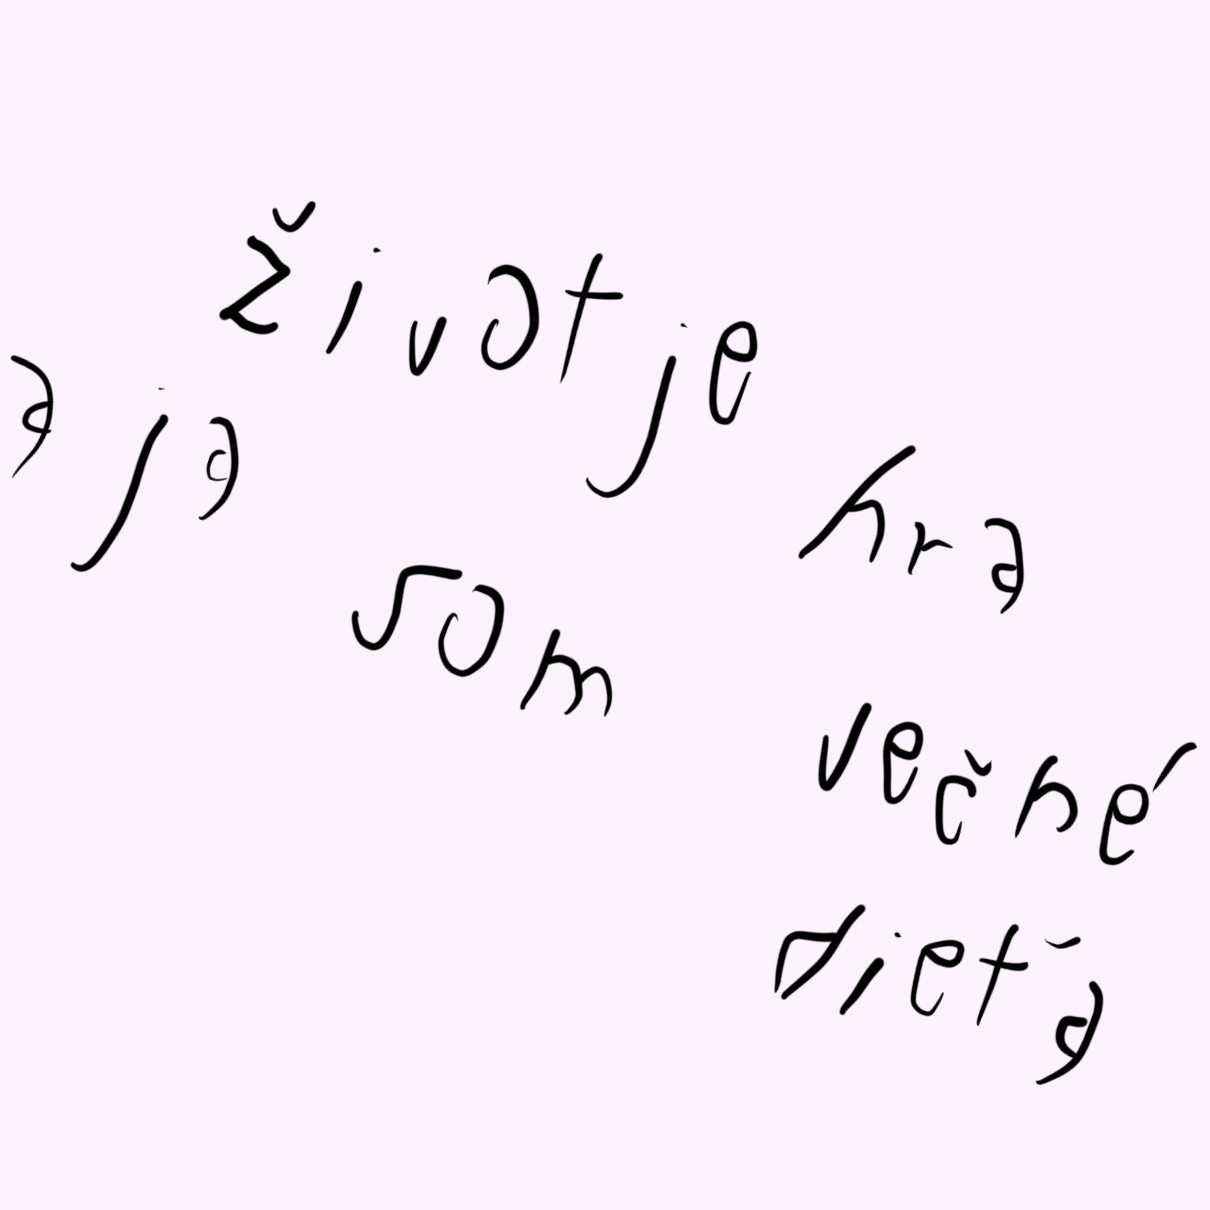 život je hra
a ja som večné
dieťa